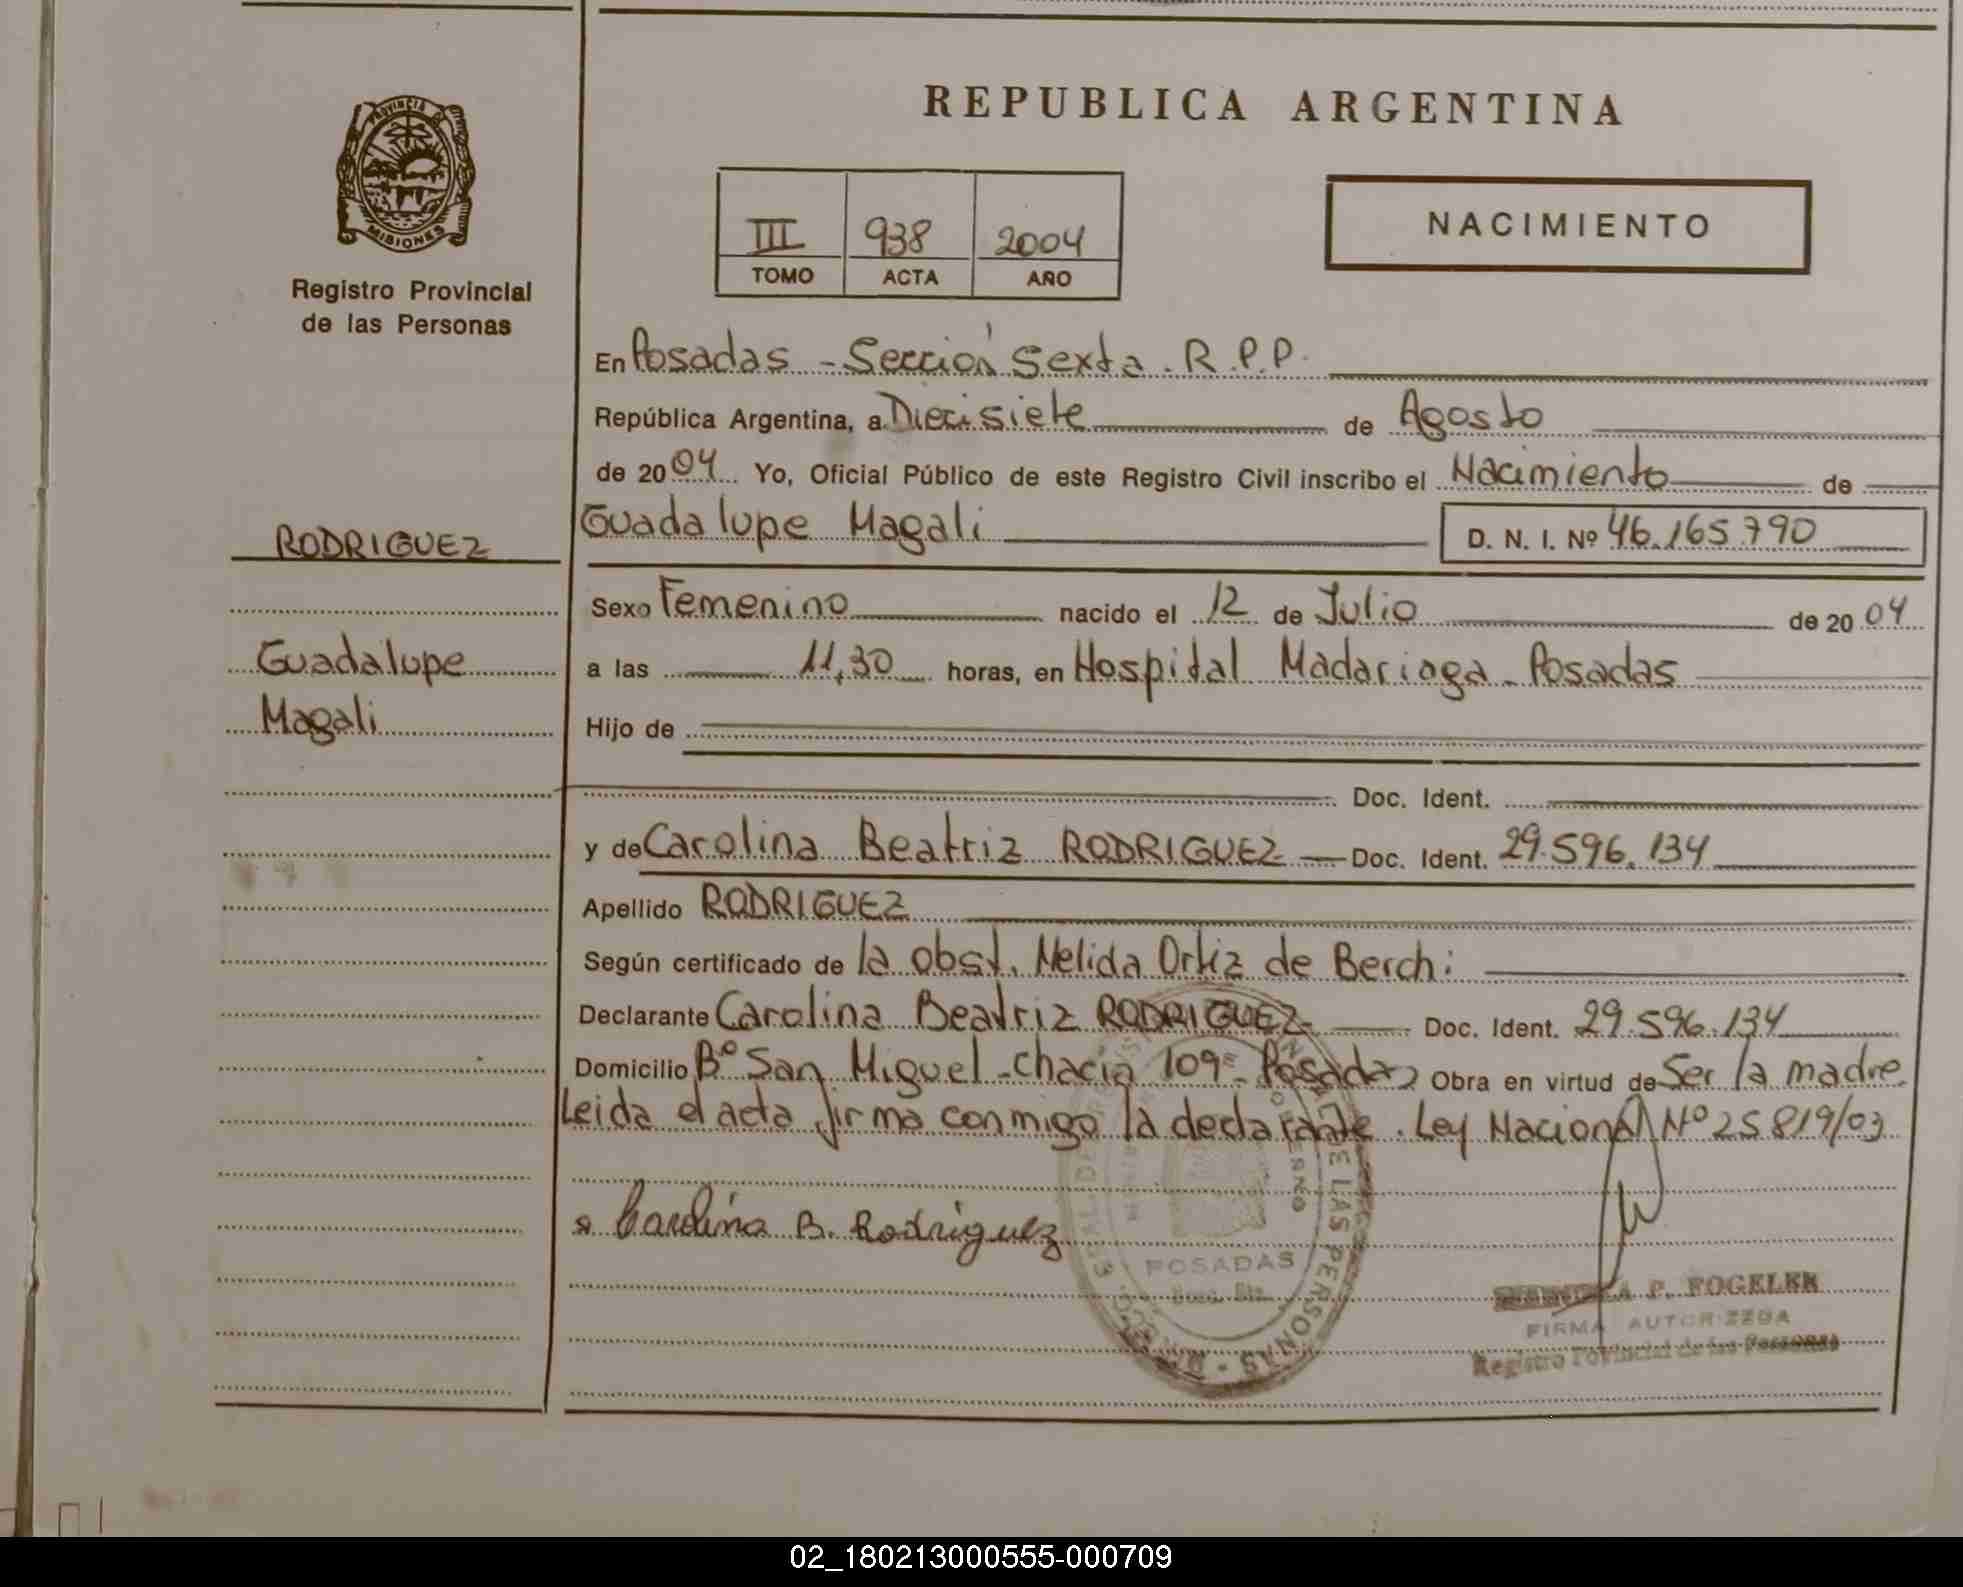 REPUBLICA ARGENTINA
PROVINCIA DE
MISIONES
Registro Provincial
de las Personas
III 938 2004
TOMO ACTA AÑO
NACIMIENTO
En Posadas - Sección Sexta. R.P.P.
República Argentina, a Diecisiete de Agosto
de 2004 Yo, Oficial Público de este Registro Civil inscribo el Nacimiento de
RODRIGUEZ
Guadalupe Magali D. N. I. Nº 46.165.790
Sexo Femenino nacido el 12 de Julio de 2004
Guadalupe
Magali
a las 11,30 horas, en Hospital Madariaga - Posadas
Hijo de
Doc. Ident.
y de Carolina Beatriz RODRIGUEZ Doc. Ident. 29.596.134
Apellido RODRIGUEZ
Según certificado de la obst. Nelida Ortiz de Berchi
Declarante Carolina Beatriz RODRIGUEZ Doc. Ident. 29.596.134
Domicilio Bº San Miguel - chacra 109 - Posadas Obra en virtud de Ser la madre.
Leida el acta firma conmigo la declarante. Ley Nacional Nº 25819/03
Carolina B. Rodriguez
DE LAS PERSONAS
POSADAS
P. FOGELER
FIRMA AUTORIZADA
Registro Provincial de las Personas
02_180213000555-000709